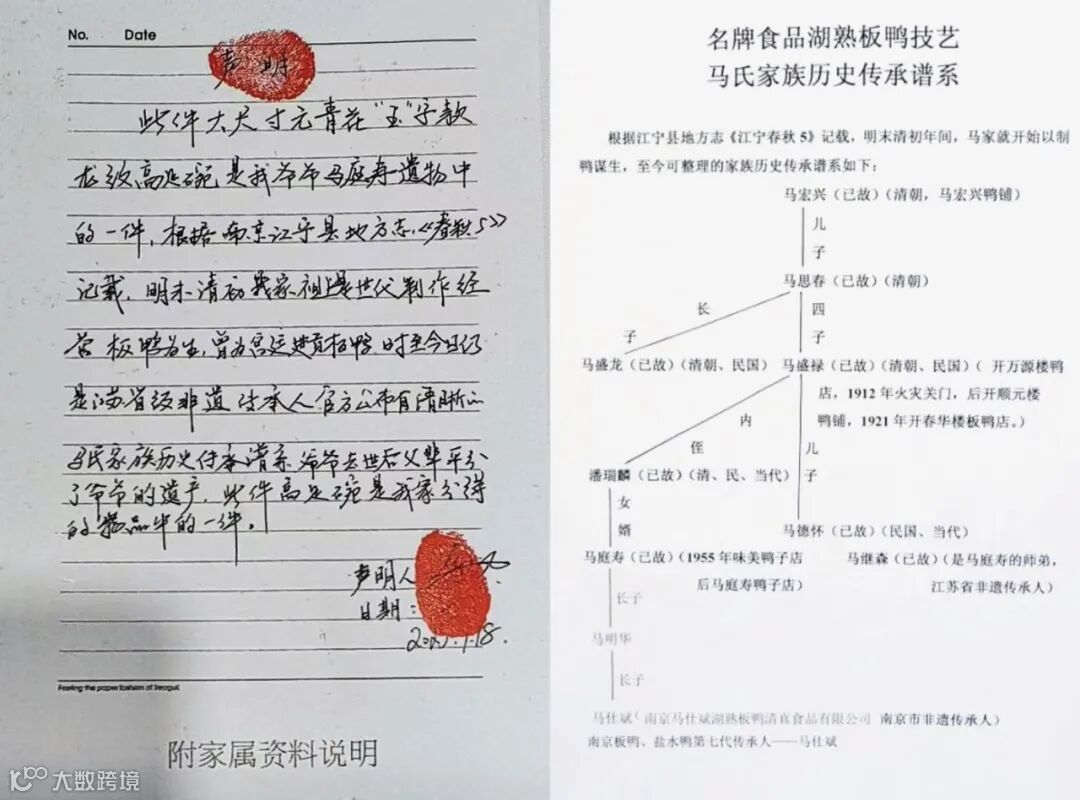 No. Date
声明
些件大尺寸元青花“玉”字款
龙纹高足碗是我爷爷马庭寿遗物中
的一件,根据南京江宁县地方志《春秋5》
记载,明末清初我家祖上是世代制作经
营板鸭为生,曾为宫廷进贡板鸭,时至今日仍
是江苏省级非遗传承人官方公布有清晰的
马氏家族历史传承谱系,爷爷去世后父辈平分
了爷爷的遗产,些件高足碗是我家分得
的物品中的一件。
声明人
日期:
附家属资料说明
大数跨境
名牌食品湖熟板鸭技艺
马氏家族历史传承谱系
根据江宁县地方志《江宁春秋5》记载,明末清初年间,马家就开始以制
鸭谋生,至今可整理的家族历史传承谱系如下:
马宏兴(已故)(清朝,马宏兴鸭铺)
儿
子
马思春(已故)(清朝)
长 四
子 子
马盛龙(已故)(清朝、民国) 马盛禄(已故)(清朝、民国)( 开万源楼鸭
店,1912年火灾关门,后开顺元楼
内 鸭铺,1921年开春华楼板鸭店。)
侄 儿
潘瑞麟(已故)(清、民、当代) 子
女
婿 马德怀(已故)(民国、当代)
马庭寿(已故)(1955年味美鸭子店 马继森(已故)(是马庭寿的师弟,
后马庭寿鸭子店) 江苏省非遗传承人)
长子
马明华
长子
马仕斌(南京马仕斌湖熟板鸭清真食品有限公司 南京市非遗传承人)
南京板鸭、盐水鸭第七代传承人——马仕斌